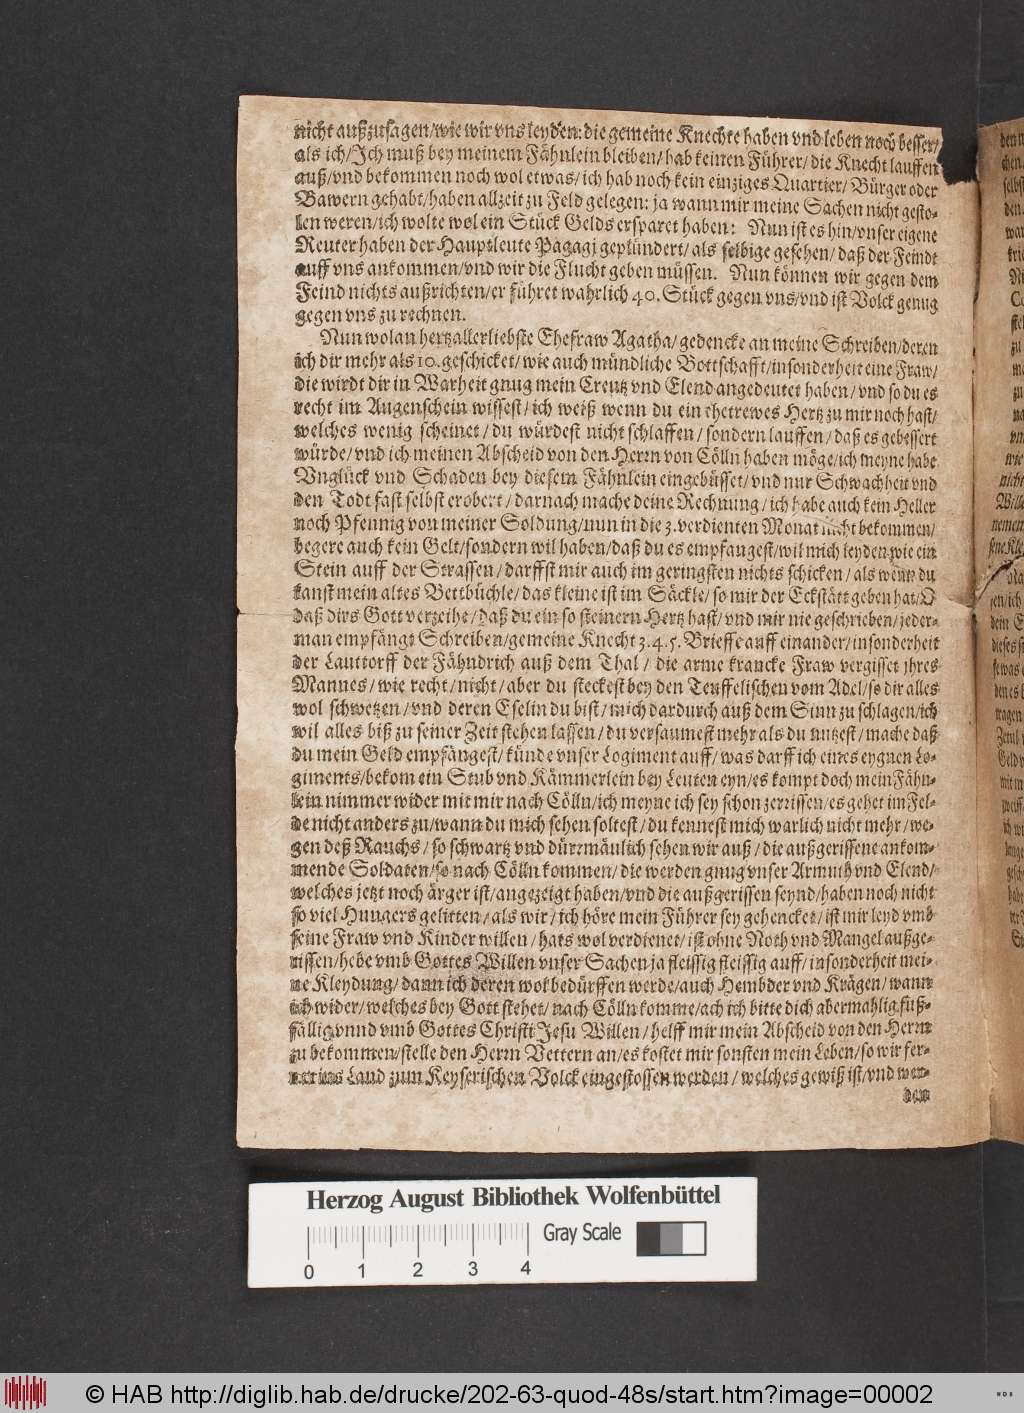 nicht außzusagen/wie wir vns leyden: die gemeine Knechte haben vnd leben noch besser/
als ich/Ich muß bey meinem Fähnlein bleiben/hab keinen Führer/die Knecht lauffen
auß/vnd bekommen noch wol etwas/ich hab noch kein einziges Quartier/Bürger oder
Bawern gehabt/haben allzeit zu Feld gelegen: ja wann mir meine Sachen nicht gesto-
len weren/ich wolte wol ein Stück Gelds ersparet haben: Nun ist es hin/vnser eigene
Reuter haben der Hauptleute Pagagi geplündert/als selbige gesehen/daß der Feindt
auff vns ankommen/vnd wir die Flucht geben müssen. Nun können wir gegen dem
Feind nichts außrichten/er führet wahrlich 40. Stück gegen vns/vnd ist Volck genug
gegen vns zu rechnen.
Nun wolan hertzallerliebste Ehefraw Agatha/gedencke an meine Schreiben/deren
ich dir mehr als 10. geschicket/wie auch mündliche Bottschafft/insonderheit eine Fraw/
die wirdt dir in Warheit gnug mein Creutz vnd Elend angedeutet haben/vnd so du es
recht im Augenschein wissest/ich weiß wenn du ein ehetrewes Hertz zu mir noch hast/
welches wenig scheinet/du würdest nicht schlaffen/sondern lauffen/daß es gebessert
würde/vnd ich meinen Abscheid von den Herrn von Cölln haben möge/ich meyne habe
Vnglück vnd Schaden bey diesem Fähnlein eingebüsset/vnd nur Schwachheit vnd
den Todt fast selbst erobert/darnach mache deine Rechnung/ich habe auch kein Heller
noch Pfennig von meiner Soldung/nun in die 3. verdienten Monat nicht bekommen/
begere auch kein Gelt/sondern wil haben/daß du es empfangest/wil mich leyden wie ein
Stein auff der Strassen/darffst mir auch im geringsten nichts schicken/als wenn du
kanst mein altes Bettbüchle/das kleine ist im Säckle/so mir der Eckstätt geben hat/O
daß dirs Gott verzeihe/daß du ein so steinern Hertz hast/vnd mir nie geschrieben/jeder-
man empfängt Schreiben/gemeine Knecht 3. 4. 5. Brieffe auff einander/insonderheit
der Lauttorff der Fähndrich auß dem Thal/die arme krancke Fraw vergisset jhres
Mannes/wie recht/nicht/aber du steckest bey den Teuffelischen vom Adel/so dir alles
wol schwetzen/vnd deren Eselin du bist/mich dardurch auß dem Sinn zu schlagen/ich
wil alles biß zu seiner Zeit stehen lassen/du versaumest mehr als du nutzest/mache daß
du mein Geld empfängest/künde vnser Logiment auff/was darff ich eines eygnen Lo-
giments/bekom ein Stub vnd Kämmerlein bey Leuten eyn/es kompt doch mein Fähn-
lein nimmer wider mit mir nach Cölln/ich meyne ich sey schon zerrissen/es gehet im Fel-
de nicht anders zu/wann du mich sehen soltest/du kennest mich warlich nicht mehr/we-
gen deß Rauchs/so schwartz vnd dürrmäulich sehen wir auß/die außgerissene ankom-
mende Soldaten/so nach Cölln kommen/die werden gnug vnser Armuth vnd Elend/
welches jetzt noch ärger ist/angezeigt haben/vnd die außgerissen seynd/haben noch nicht
so viel Hungers gelitten/als wir/ich höre mein Führer sey gehencket/ist mir leyd vmb
seine Fraw vnd Kinder willen/hats wol verdienet/ist ohne Noth vnd Mangel außge-
rissen/hebe vmb Gottes Willen vnser Sachen ja fleissig fleissig auff/insonderheit mei-
ne Kleydung/dann ich deren wol bedürffen werde/auch Hembder vnd Krägen/wann
ich wider/welches bey Gott stehet/nach Cölln komme/ach ich bitte dich abermahlig fuß-
fällig vnnd vmb Gottes Christi Jesu Willen/helff mir mein Abscheid von den Herrn
zu bekommen/stelle den Herrn Vettern an/es kostet mir sonsten mein Leben/so wir fer-
ner ins Land zum Keyserischen Volck eingestossen werden/welches gewiß ist/vnd wer-
den
Herzog August Bibliothek Wolfenbüttel
0 1 2 3 4 Gray Scale
© HAB http://diglib.hab.de/drucke/202-63-quod-48s/start.htm?image=00002